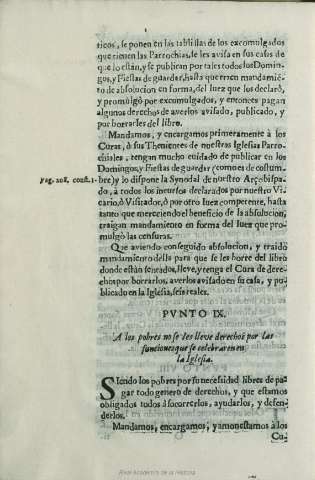 ticos, se ponen en las tablillas de los excomulgados
que tienen las Parrochias, se les avisa en sus casas de
que lo están, y se publican por tales todos los Domin-
gos, y Fiestas de guardar, hasta que traen mandamié-
to de absolucion en forma, del Juez que los declarò,
y promulgò por excomulgados, y entonces pagan
algunos derechos de averlos avisado, publicado, y
por borrarles del libro.
Mandamos, y encargamos primeramente à los
Curas, ò sus Thenientes de nuestras Iglesias Parro-
chiales, tengan mucho cuidado de publicar en los
Domingos, y Fiestas de guardar (como es de costum-
pag. 208. const. 1.
bre) y lo dispone la Synodal de nuestro Arçobispa-
do, à todos los incursos declarados por nuestro Vi-
cario, ò Visitador, ò por otro Juez competente, hasta
tanto que mereciendo el beneficio de la absolucion,
traigan mandamiento en forma del Juez que pro-
mulgò las censuras.
Que aviendo conseguido absolucion, y traido
mandamiento della para que se les borre del libro
donde están sentados, lleve, y tenga el Cura de dere-
chos por borrarlos, averlos avisado en su casa, y pu-
blicado en la Iglesia, seis reales.
PVNTO IX.
A los pobres no se les lleve derechos por las
funciones que se celebraren en
la Iglesia.
Siendo los pobres por su necesidad libres de pa-
gar todo genero de derechos, y que estamos
obligados todos à socorrerlos, ayudarlos, y defen-
derlos.
Mandamos, encargamos, y amonestamos à los
Cu-
Real Academia de la Historia